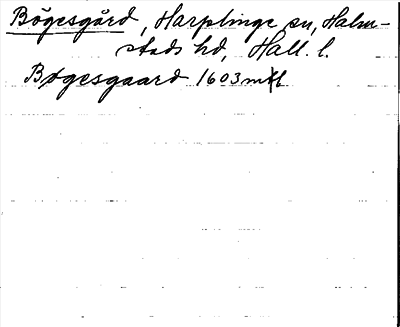 Bögesgård, Harplinge sn, Halm-
stads hd, Hall. l.
Bøgesgaard 1603 mtl